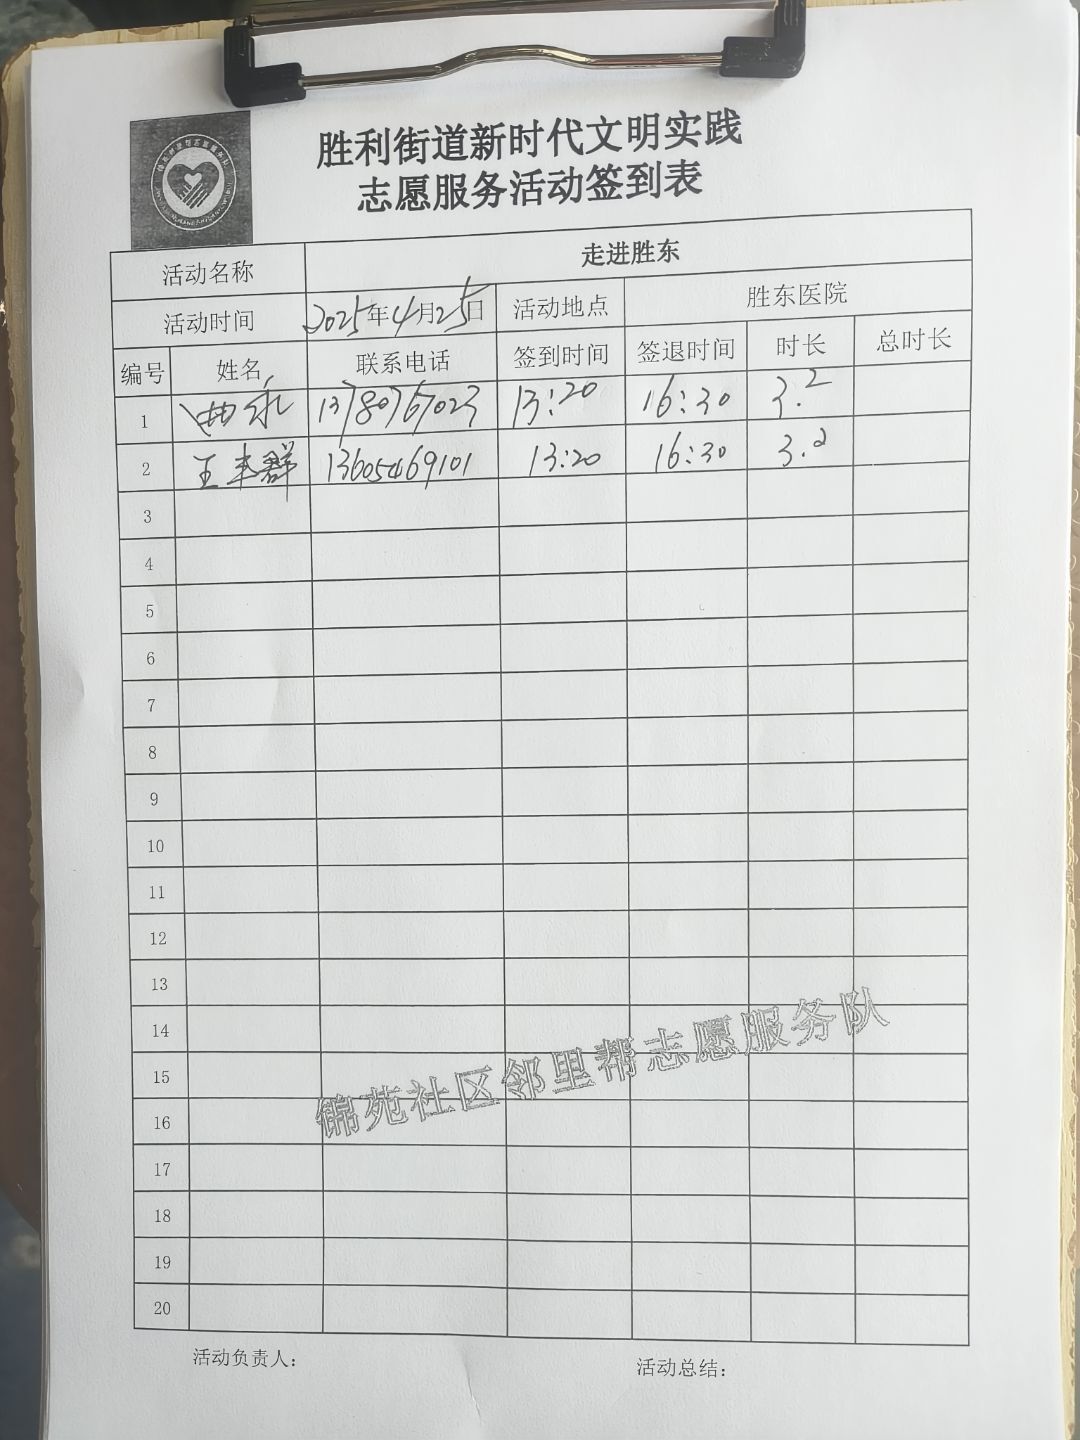 胜利街道新时代文明实践
志愿服务活动签到表
活动名称 走进胜东
活动时间 2025年4月25日 活动地点 胜东医院
编号 姓名 联系电话 签到时间 签退时间 时长 总时长
1 曲永 13780767023 13:20 16:30 3.2
2 王丰群 13605469101 13:20 16:30 3.2
3
4
5
6
7
8
9
10
11
12
13
14
15
16
17
18
19
20
锦苑社区邻里帮志愿服务队
活动负责人: 活动总结: